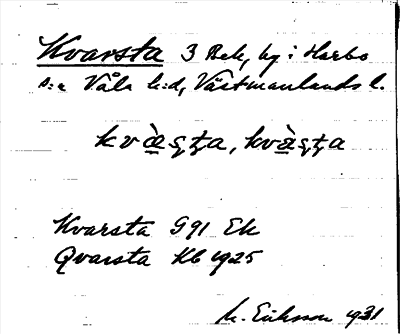 Kvarsta 3 Bek, by i Harbo
s:n Våla h:d, Västmanlands l.
kvàṣṭa, kvàṣṭa
Kvarsta G 91 Ek
Qvarsta Kb 1925
M. Eriksson 1931